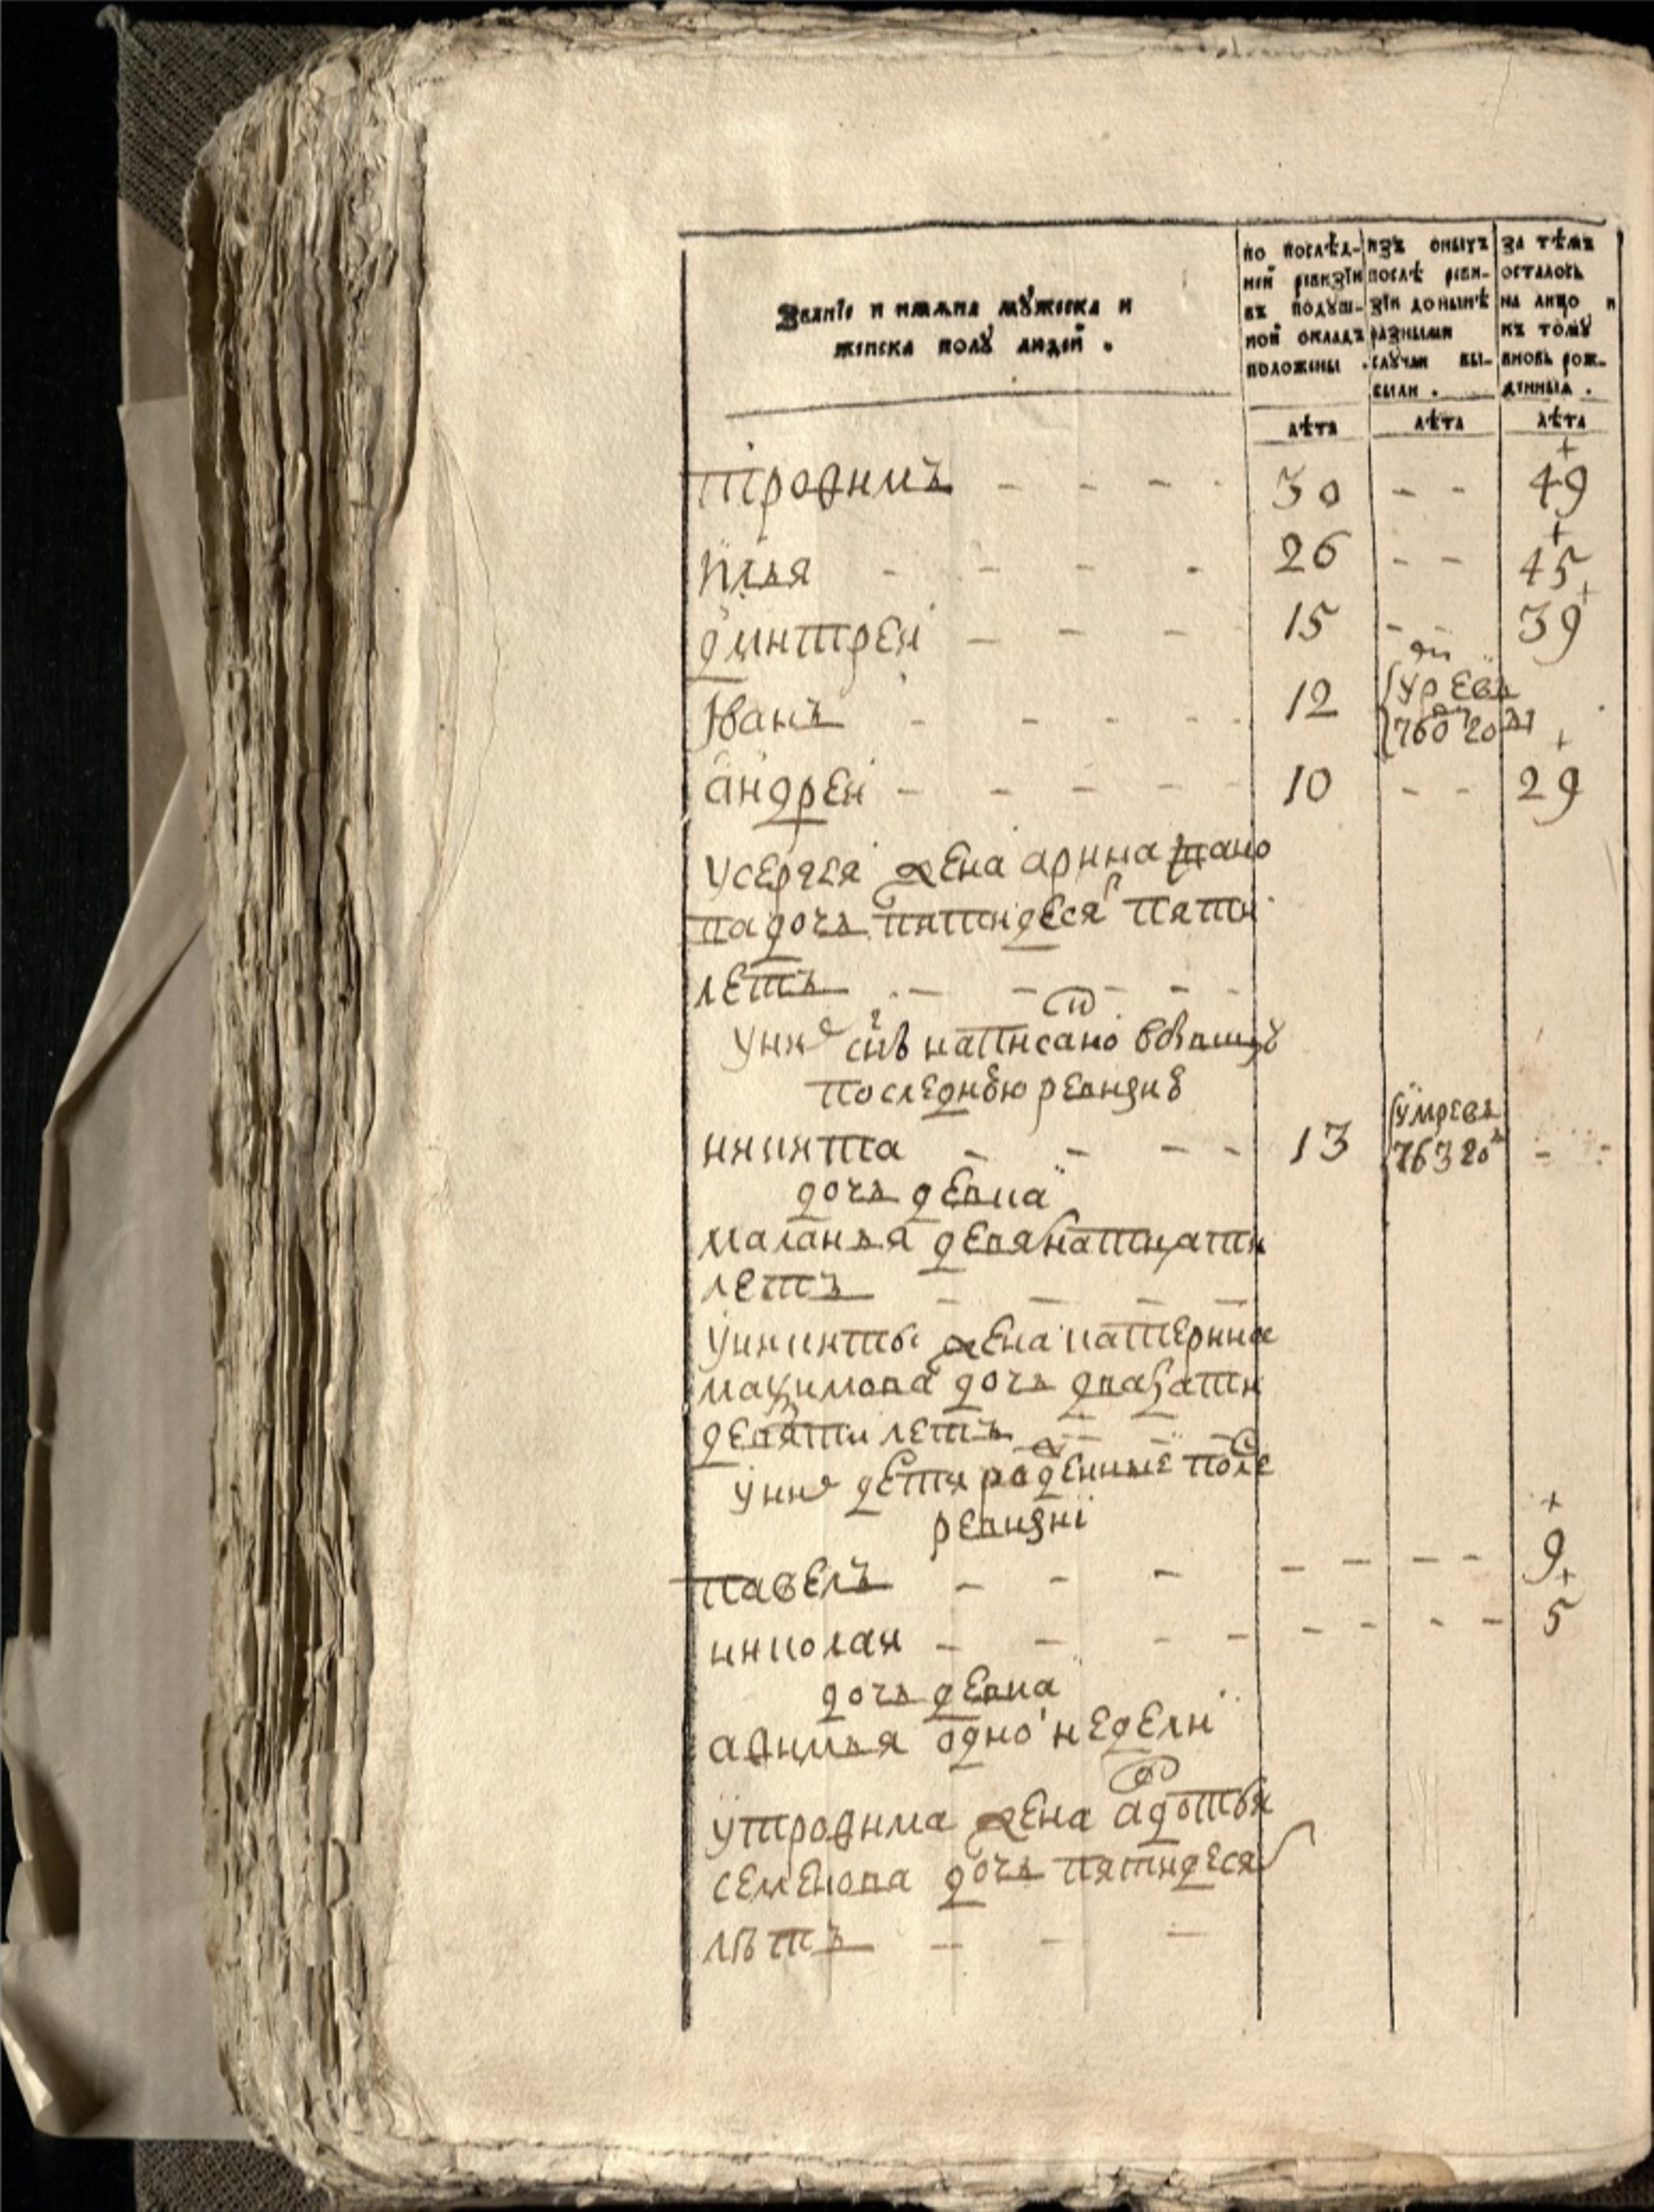 Званїе и имѧна мꙋжеска и
женска полꙋ людей .
по послѣд-
ней ревизїи
въ подꙋш-
ной окладъ
положены .
изъ оныхъ
послѣ реви-
зїи донынѣ
разными
слꙋчаи вы-
были .
за тѣмъ
осталось
на лицо и
къ томꙋ
вновь рож-
денныя .
лѣта лѣта лѣта
трофимъ - - - - 30 - - 49
илья - - - - 26 - - 45
дмитреи - - - 15 - - 39
Иванъ - - - - - 12 умре въ 760 годꙋ
андреи - - - - - 10 - - 29
усергея жена арина
дочь пятидеся пяти
летъ - - - - -
уни снъ написано
последнюю ревизию
никита - - - - 13 умре въ 763 го - -
дочь девка
маланья девятнатцати
летъ - - - -
уникиты жена катерина
максимова дочь двацати
девяти летъ - - -
уни дети рожденные после
ревизиї
павелъ - - - - - - - 9
николаи - - - - - - - - 5
дочь девка
афимья одно недели
утрофима жена авдотья
семенова дочь пятидеся
лѣтъ - - -